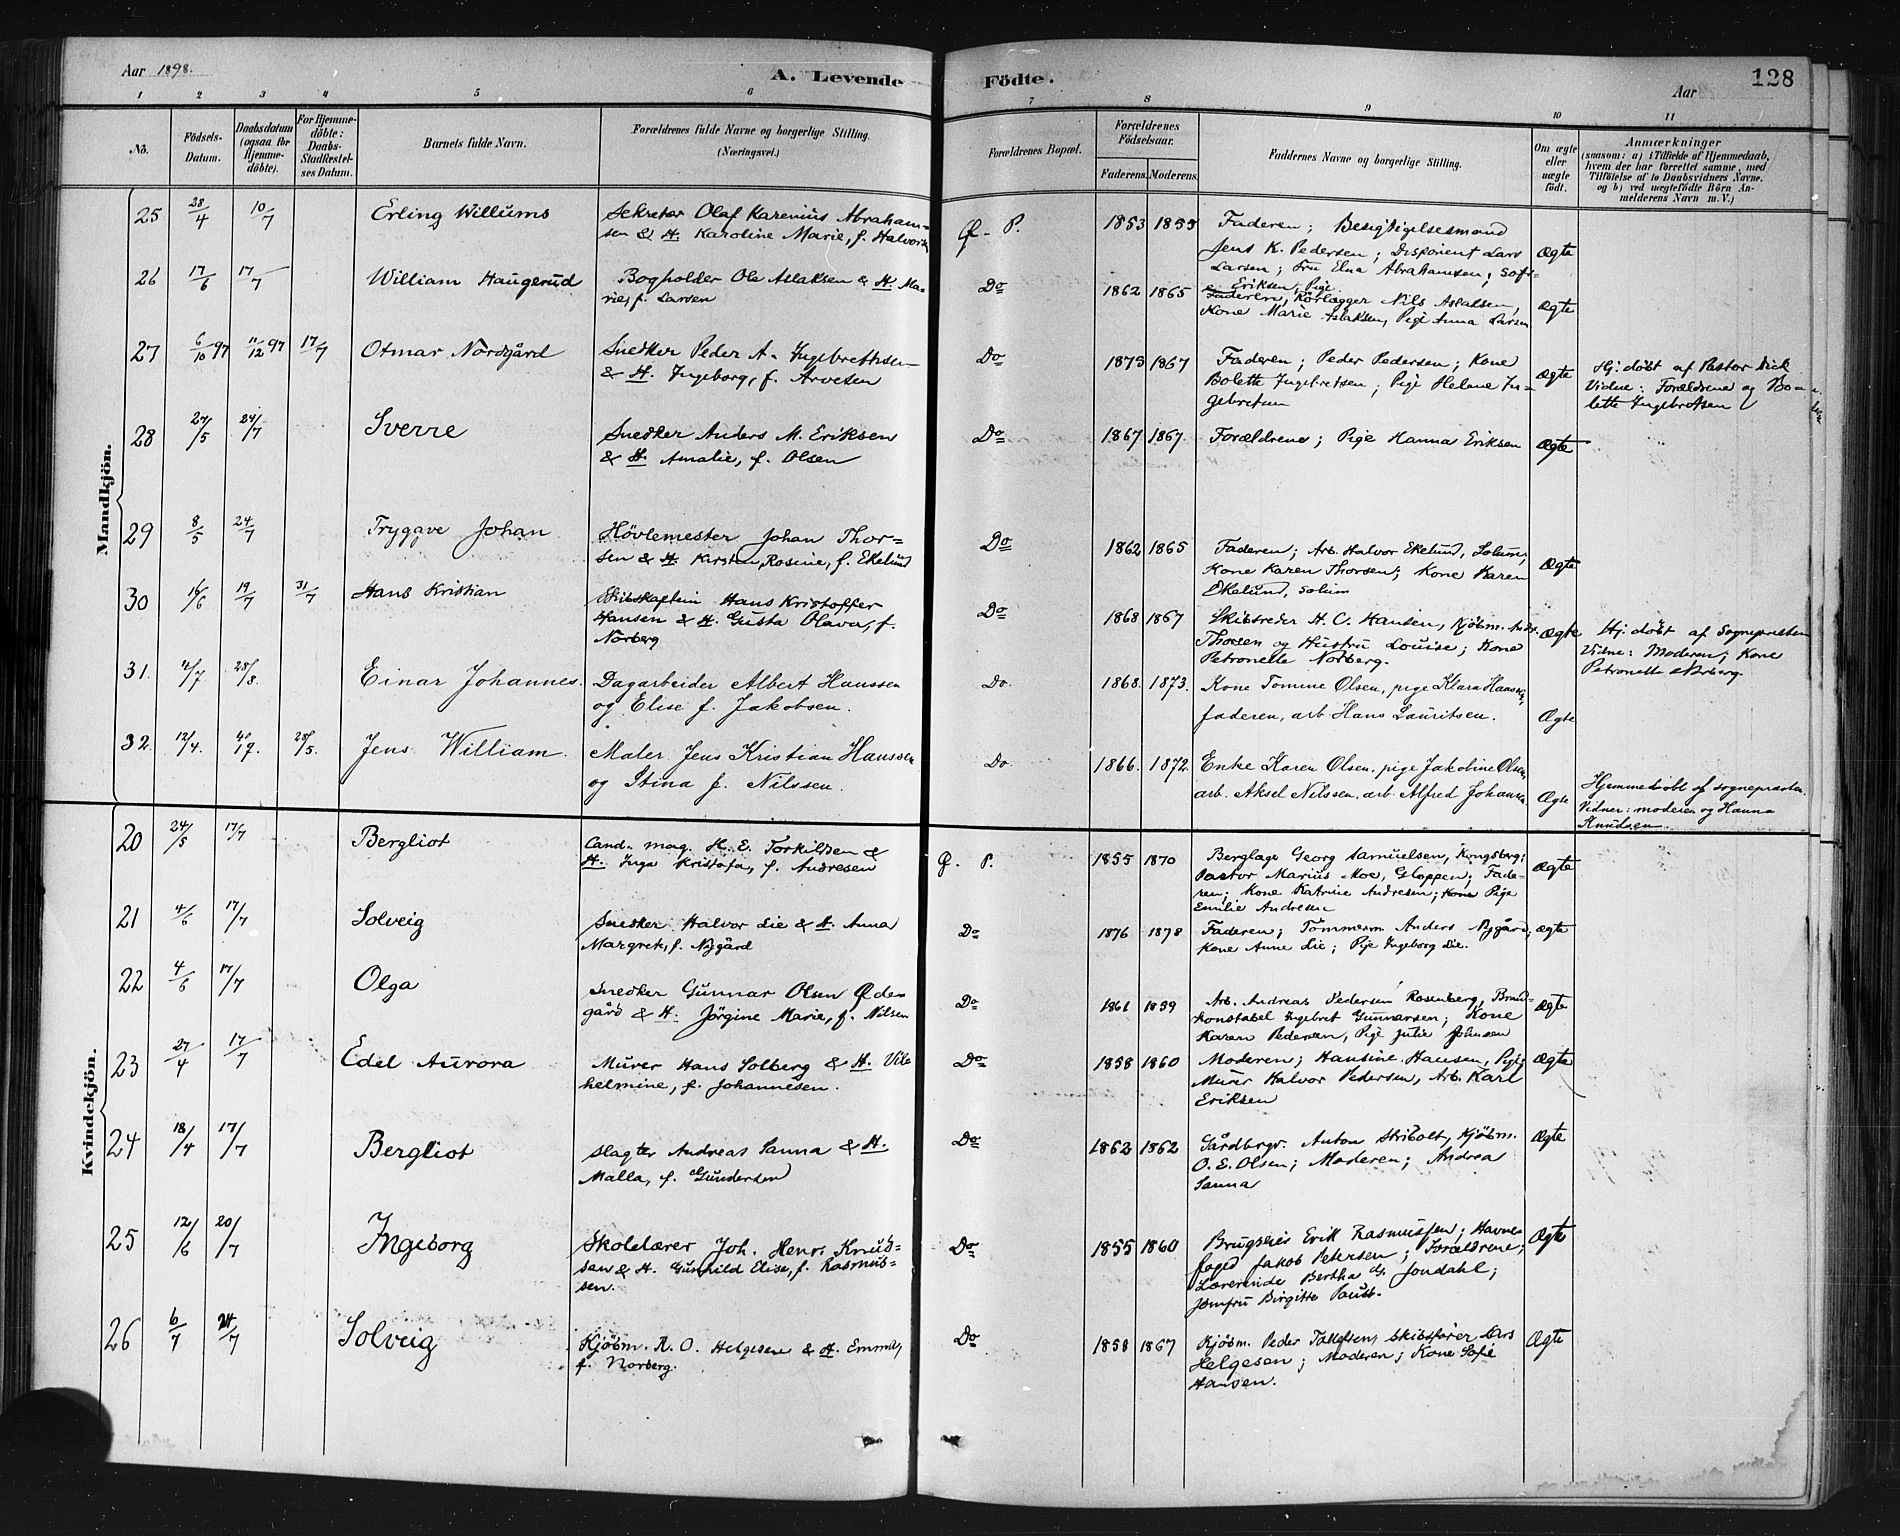 Aar 1898.
A. Levende Födte.
Aar
128
1 2 3 4 5 6 7 8 9 10 11
No.
Födsels-Datum.
Daabsdatum (ogsaa for Hjemme-döbte).
For Hjemme-döbte: Daabs-Stadfæstel-ses Datum.
Barnets fulde Navn.
Forældrenes fulde Navne og borgerlige Stilling. (Næringsvei.)
Forældrenes Bopæl.
Forældrenes Födselsaar.
Faderens. Moderens.
Faddernes Navne og borgerlige Stilling.
Om ægte eller uægte födt.
Anmærkninger
(saasom: a) i Tilfælde af Hjemmedaab,
hvem der har forrettet samme, med
Tilföielse af to Daabsvidners Navne,
og b) ved uægtefödte Börn An-
melderens Navn m. V.)
Mandkjön.
25 28/4 10/7 Erling Willums
Sekretær Olaf Karenius Abraham-
sen & H. Karoline Marie, f. Halvorsen
Ø. P. 1853 1855
Faderen; Besigtigelsesmand
Jens K. Pedersen; Disponent Lars
Larsen; Fru Elna Abrahamsen; Sofi-
Eriksen, Pige
Ægte
26 17/6 17/7 William Haugerud
Bogholder Ole Aslaksen & H. Ma-
rie, f. Larsen
Do 1862 1865
Faderen, Rörlægger Nils Aslaksen,
Kone Marie Aslaksen, Pige Anna Larsen
Ægte
27 6/10 97 11/12 97 17/7 Otmar Nordgård
Snedker Peder A. Ingebrethsen
& H. Ingeborg, f. Arvesen
Do 1873 1867
Faderen; Peder Pedersen; Kone
Bolette Ingebretsen; Pige Helene In-
gebretsen
Ægte
Hj: döbt af Pastor Dick
Vidne: Forældrene og Bo-
lette Ingebretsen
28 27/5 24/7 Sverre
Snedker Anders M. Eriksen
& H. Amalie, f. Olsen
Do 1867 1867
Forældrene; Pige Hanna Eriksen
Ægte
29 8/5 24/7 Trygave Johan
Hövlemester Johan Thor-
sen & H. Kirsten Rosine, f. Ekelund
Do 1862 1865
Faderen; Arb. Halvor Ekelund, Solum;
Kone Karen Thorsen; Kone Karen
Ekelund, Solum
Ægte
30 16/6 19/7 31/7 Hans Kristian
Skibskaptein Hans Kristoffer
Hansen & H. Gusta Olava, f.
Norberg
Do 1868 1867
Skibsreder H. C. Hansen, Kjöbm. Andr.
Thorsen og Hustru Louise; Kone
Petronelle Norberg.
Ægte
Hj. döbt af Sognepresten
Vidne: Moderen; Kone
Petronelle Norberg.
31. 4/7 28/8. Einar Johannes.
Dagarbeider Albert Hanssen
og Elise f. Jakobsen.
Do. 1868. 1873.
Kone Tomine Olsen, pige Klara Hanssen,
faderen, arb Hans Lauritsen.
Ægte
32. 12/4. 28/5. Jens William.
Maler Jens Kristian Hanssen
og Stina f. Nilssen.
Do. 1866. 1872
Enke Karen Olsen, pige Jakobine Olsen,
arb. Aksel Nilssen, arb. Alfred Johansen
Ægte
Hjemmedöbt af sognepræsten.
Vidner: moderen og Hanna
Knudsen.
Kvindekjön.
20 24/5 17/7 Bergliot
Cand. mag. H. E. Torkildsen &
H. Inga Kristofa, f. Andresen
Ø. P. 1855 1870
Berglage Georg Samuelsen, Kongsberg;
Pastor Marius Moe, Gloppen; Fade-
ren; Kone Katrine Andresen; Kone Pige
Emilie Andresen
Ægte
21 4/6 17/7 Solveig
Snedker Halvor Lie & H. Anna
Margret, f. Nygård
Do 1876 1878
Faderen; Tömmerm. Anders Nygård;
Kone Anne Lie; Pige Ingeborg Lie.
Ægte
22 4/6 17/7 Olga
Snedker Gunnar Olsen Øde-
gård & H. Jörgine Marie, f. Nilsen
Do 1861 1859
Arb. Andreas Pedersen Rosenberg, Brand-
konstabel Ingebret Gunnarsen; Kone
Karen Pedersen, Pige Julie Johnsen
Ægte
23 27/4 17/7 Edel Aurora
Murer Hans Solberg & H. Vil-
helmine, f. Johannesen.
Do 1858 1860
Moderen; Hansine Hansen, Pige
Murer Halvor Pedersen, Arb. Karl
Eriksen
Ægte
24 18/4 17/7 Bergliot
Slagter Andreas Sanna & H.
Malla, f. Gundersen
Do 1862 1862
Gårdbrgr. Anton Skibolt, Kjöbm.
O. E. Olsen; Moderen; Andrea
Sanna
Ægte
25 12/6 20/7 Ingeborg
Skolelærer Joh. Henr. Knud-
sen & H. Gunhild Elise, f. Rasmus-
sen.
Do 1855 1860
Brugseier Erik Rasmussen; Havne-
foged Jakob Petersen; Forældrene;
Lærerinde Bertha Jondahl;
Jomfru Birgitte Paust.
Ægte
26 6/7 24/7 Solveig
Kjöbm. R. O. Helgesen & H. Emma,
f. Norberg.
Do 1858 1867
Kjöbm. Peder Tallefsen, Skibsförer Lars
Helgesen; Moderen; Kone Sofie
Hansen.
Ægte